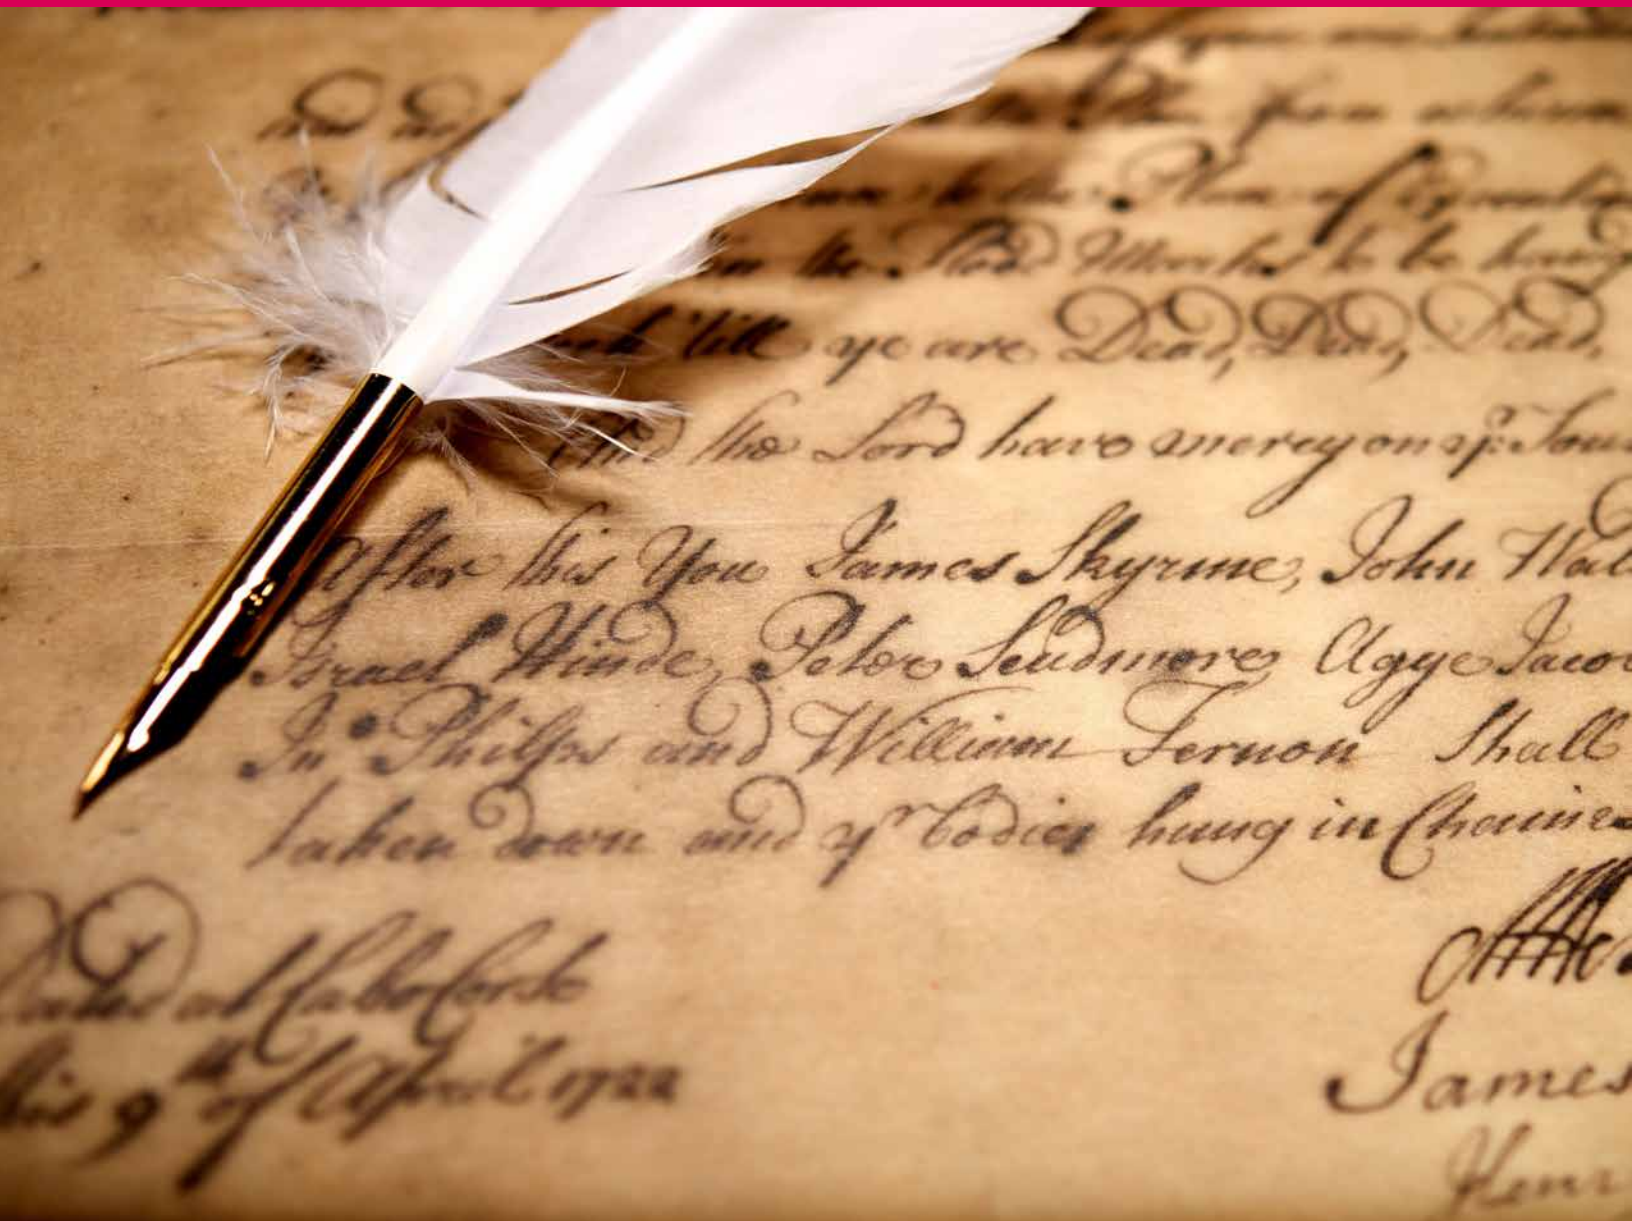 from whence
Place of Execution
in the flood Marks to be hang'd
'till ye are Dead, Dead, Dead,
And the Lord have mercy on yr. Souls
After this You James Skyrme, John Wal
Israel Hinde, Peter Scudmore Agge Jacob
Jno Philps and William Fernon Shall
taken down and yr bodies hung in Chaines
Dated at Cabo Corso
this 9th of April 1722
James
Henr